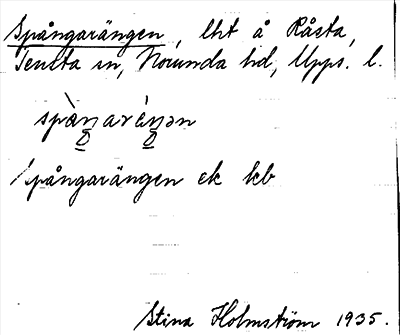 Spångarängen, lht å Råsta,
Tensta sn, Norunda hd, Upps. l.
spàŋarèŋən
Spångarängen ek kb
Stina Holmström 1935.